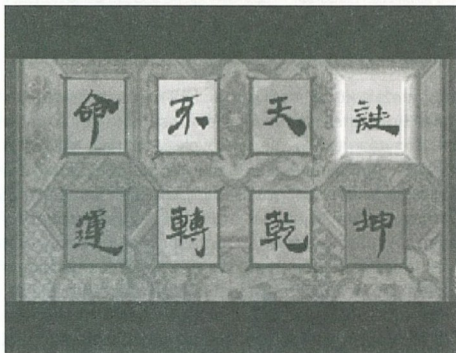 命 不 天
運 轉 乾 坤